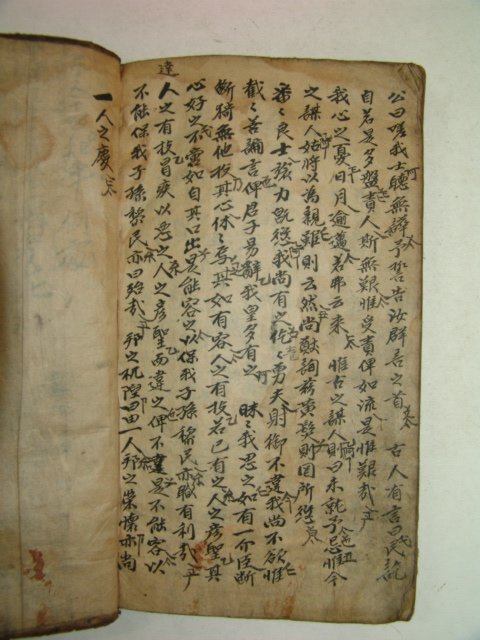 公曰嗟我士聽無譁予誓告汝群言之首 古人有言曰民訖
自若是多盤責人斯無艱惟受責俾如流是惟艱哉
我心之憂日月逾邁若弗云來 惟古之謀人則曰未就予忌惟今
之謀人姑將以為親雖則云然尚猷詢茲黃髮則罔所愆
番〻良士旅力既愆我尚有之仡〻勇夫射御不違我尚不欲惟
截〻善諞言俾君子易辭我皇多有之 昧〻我思之如有一介臣斷
斷猗無他技其心休〻焉其如有容人之有技若己有之人之彥聖其
心好之不啻如自其口出是能容之以保我子孫黎民亦職有利哉
達
人之有技冒疾以惡之人之彥聖而違之俾不達是不能容以
不能保我子孫黎民亦曰殆哉 邦之杌隉曰由一人邦之榮懷亦尚
一人之慶